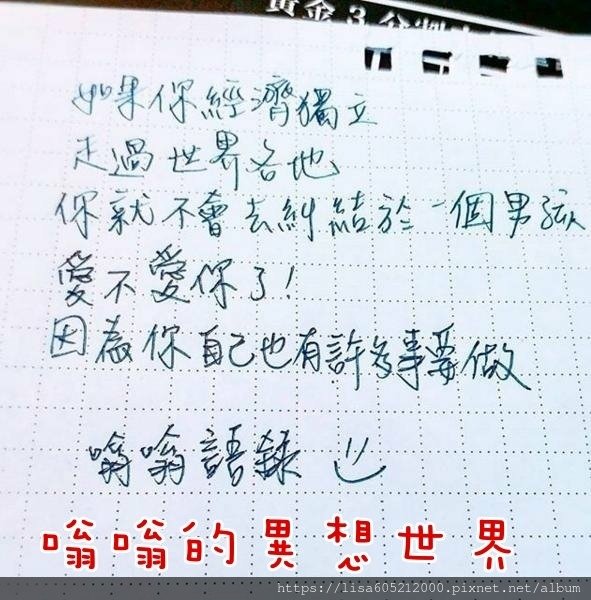 黃金3分割
如果你經濟獨立
走過世界各地
你就不會去糾結於一個男孩
愛不愛你了!
因為你自己也有許多事要做
嗡嗡語錄
嗡嗡的異想世界
https://lisa605212000.pixnet.net/album